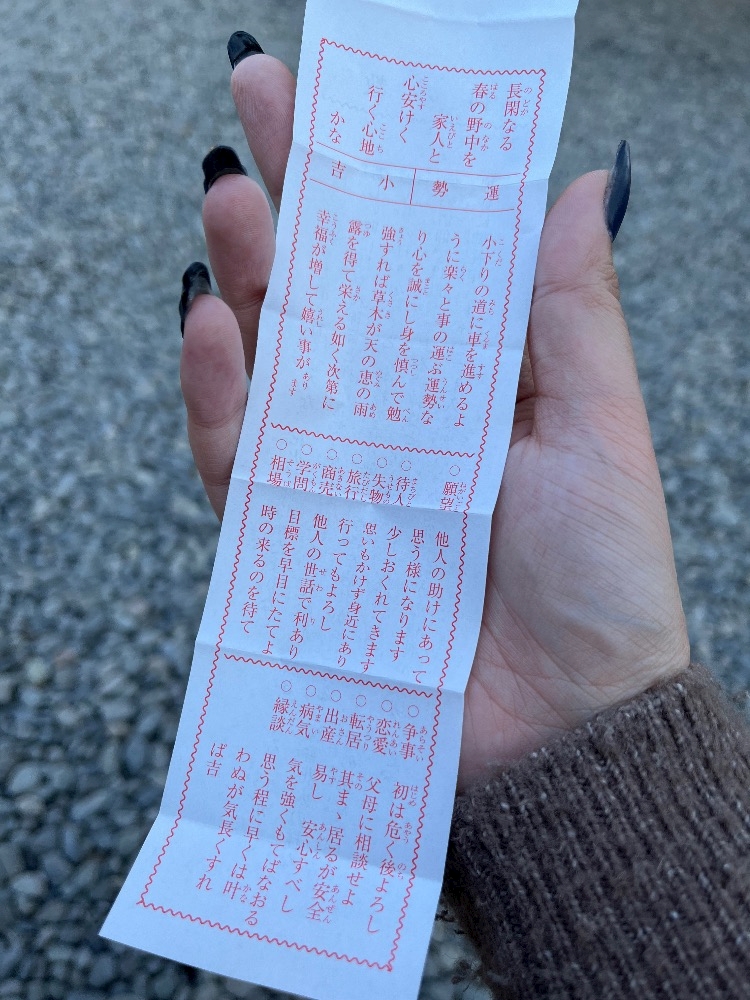 長閑なる
春の野中を
家人と
心安けく
行く心地
かな
運勢
小吉
小下りの道に車を進めるよ
うに楽々と事の運ぶ運勢な
り心を誠にし身を慎んで勉
強すれば草木が天の恵の雨
露を得て栄える如く次第に
幸福が増して嬉い事が有ます
○願望 他人の助けにあって
思う様になります
○待人 少しおくれてきます
○失物 思いもかけず身近にあり
○旅行 行ってもよろし
○商売 他人の世話で利あり
○学問 目標を早目にたてよ
○相場 時の来るのを待て
○争事 初は危く後よろし
○恋愛 父母に相談せよ
○転居 其まゝ居るが安全
○出産 易し 安心すべし
○病気 気を強くもてばなおる
○縁談 思う程に早くは叶
わぬが気長くすれ
ば吉